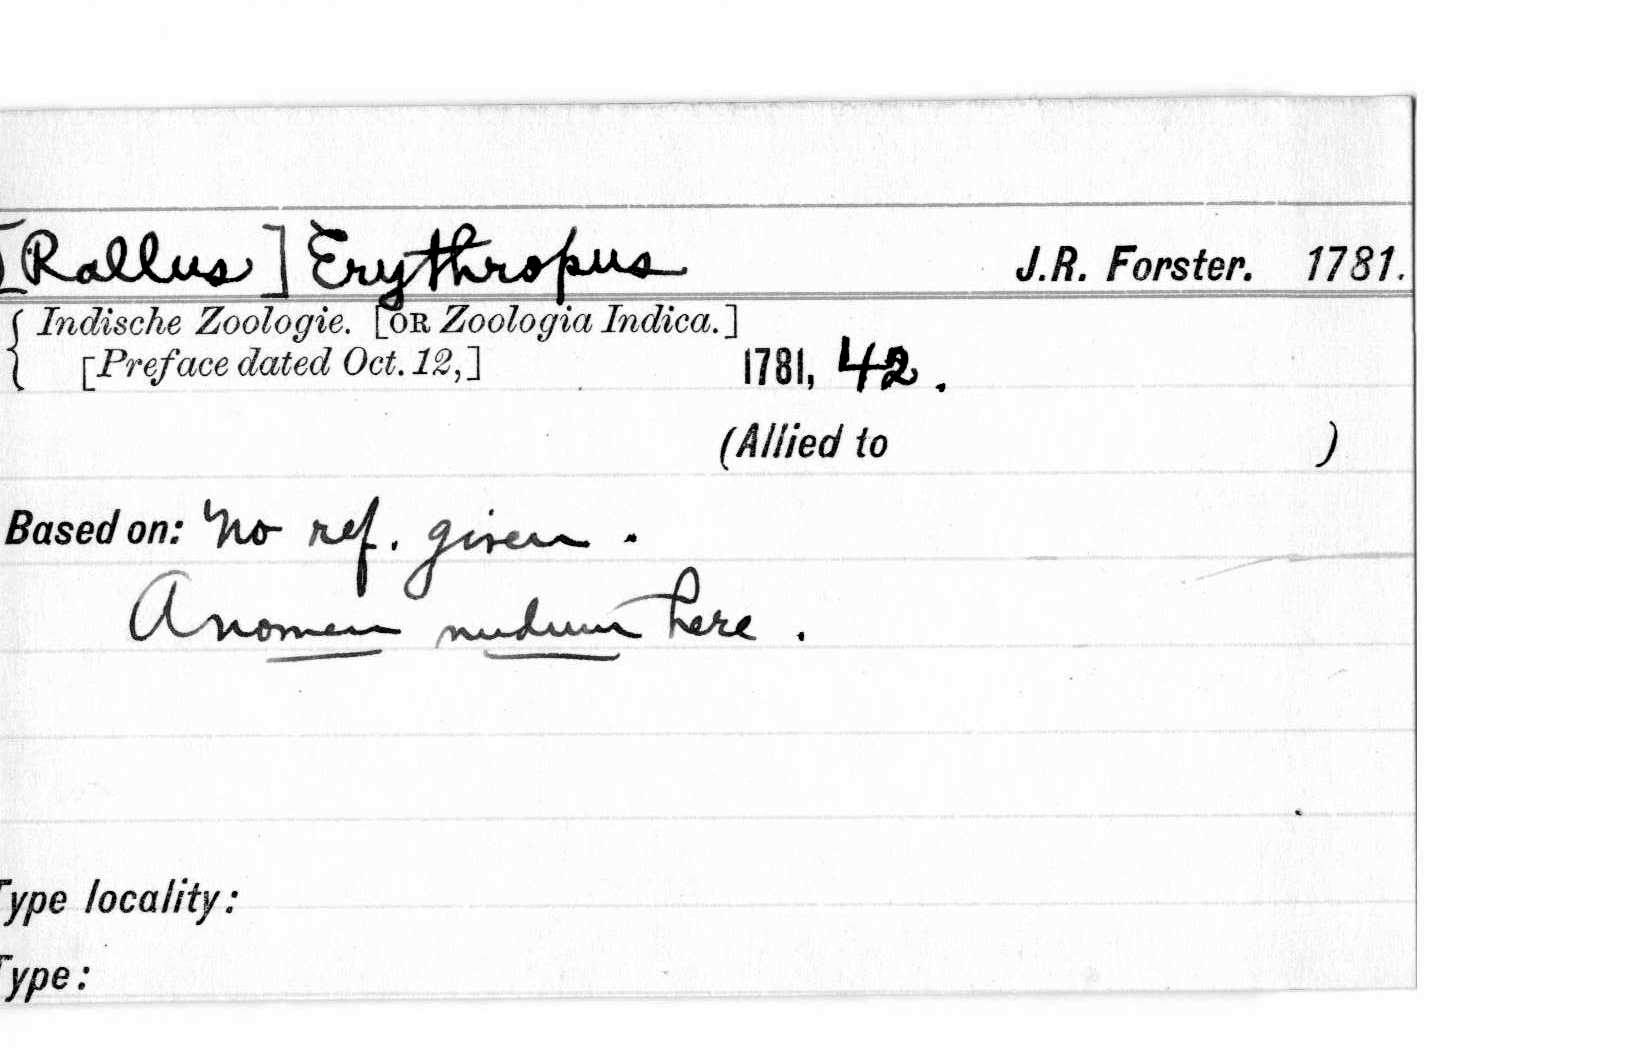 [Rallus] Erythropus J.R. Forster. 1781.
Indische Zoologie. [OR Zoologia Indica.]
[Preface dated Oct. 12,] 1781, 42.
(Allied to )
Based on: No ref. given.
A nomen nudum here.
Type locality:
Type: